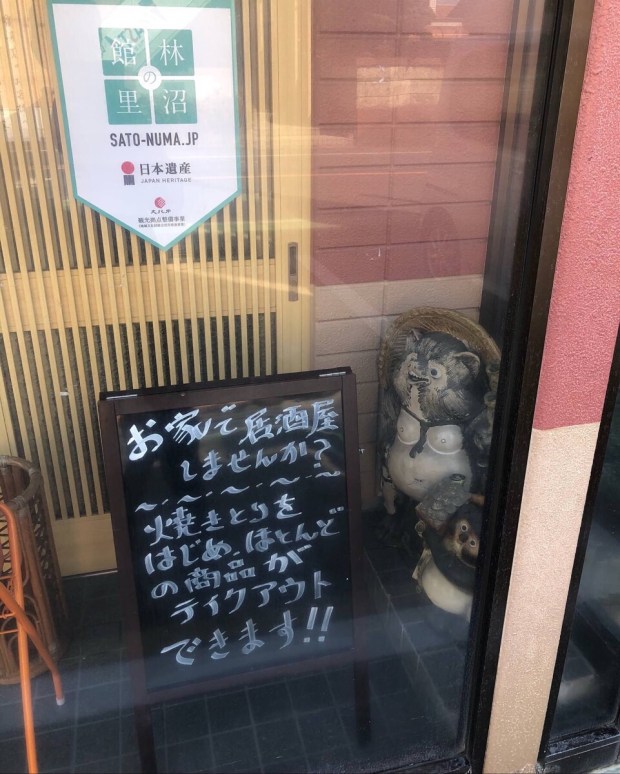 館林
の
里沼
SATO-NUMA.JP
日本遺産
JAPAN HERITAGE
お家で居酒屋
しませんか?
〜〜〜〜〜
焼きとりを
はじめ、ほとんど
の商品が
テイクアウト
できます!!